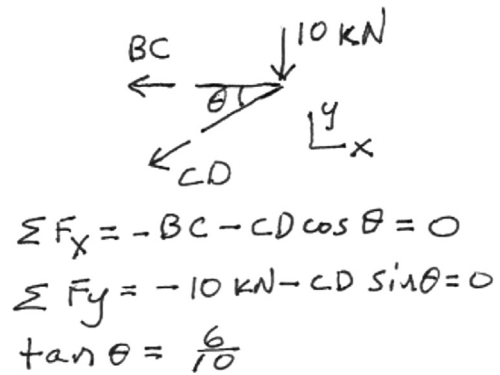 10 KN
BC
θ
y
x
CD
ΣFx = -BC - CD cos θ = 0
Σ Fy = -10 KN - CD sinθ = 0
tan θ = 6/10